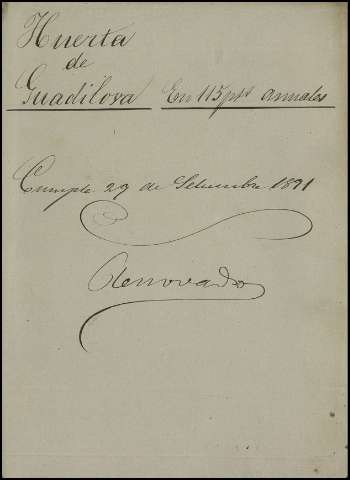 Huerta
de
Guadilova En 115 pts anuales
Cumple 29 de Setiembre 1891
Renovado